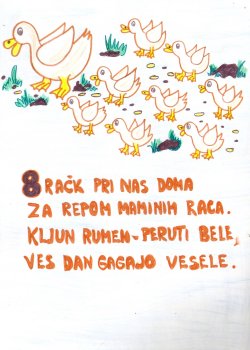 8 RAČK PRI NAS DOMA
ZA REPOM MAMINIM RACA.
KLJUN RUMEN - PERUTI BELE,
VES DAN GAGAJO VESELE.